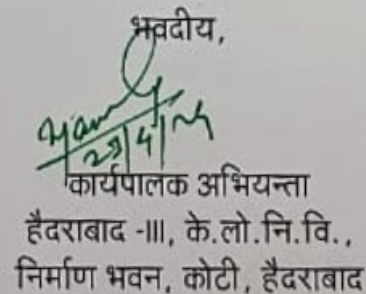 भवदीय,
कार्यपालक अभियन्ता
हैदराबाद -III, के.लो.नि.वि.,
निर्माण भवन, कोटी, हैदराबाद